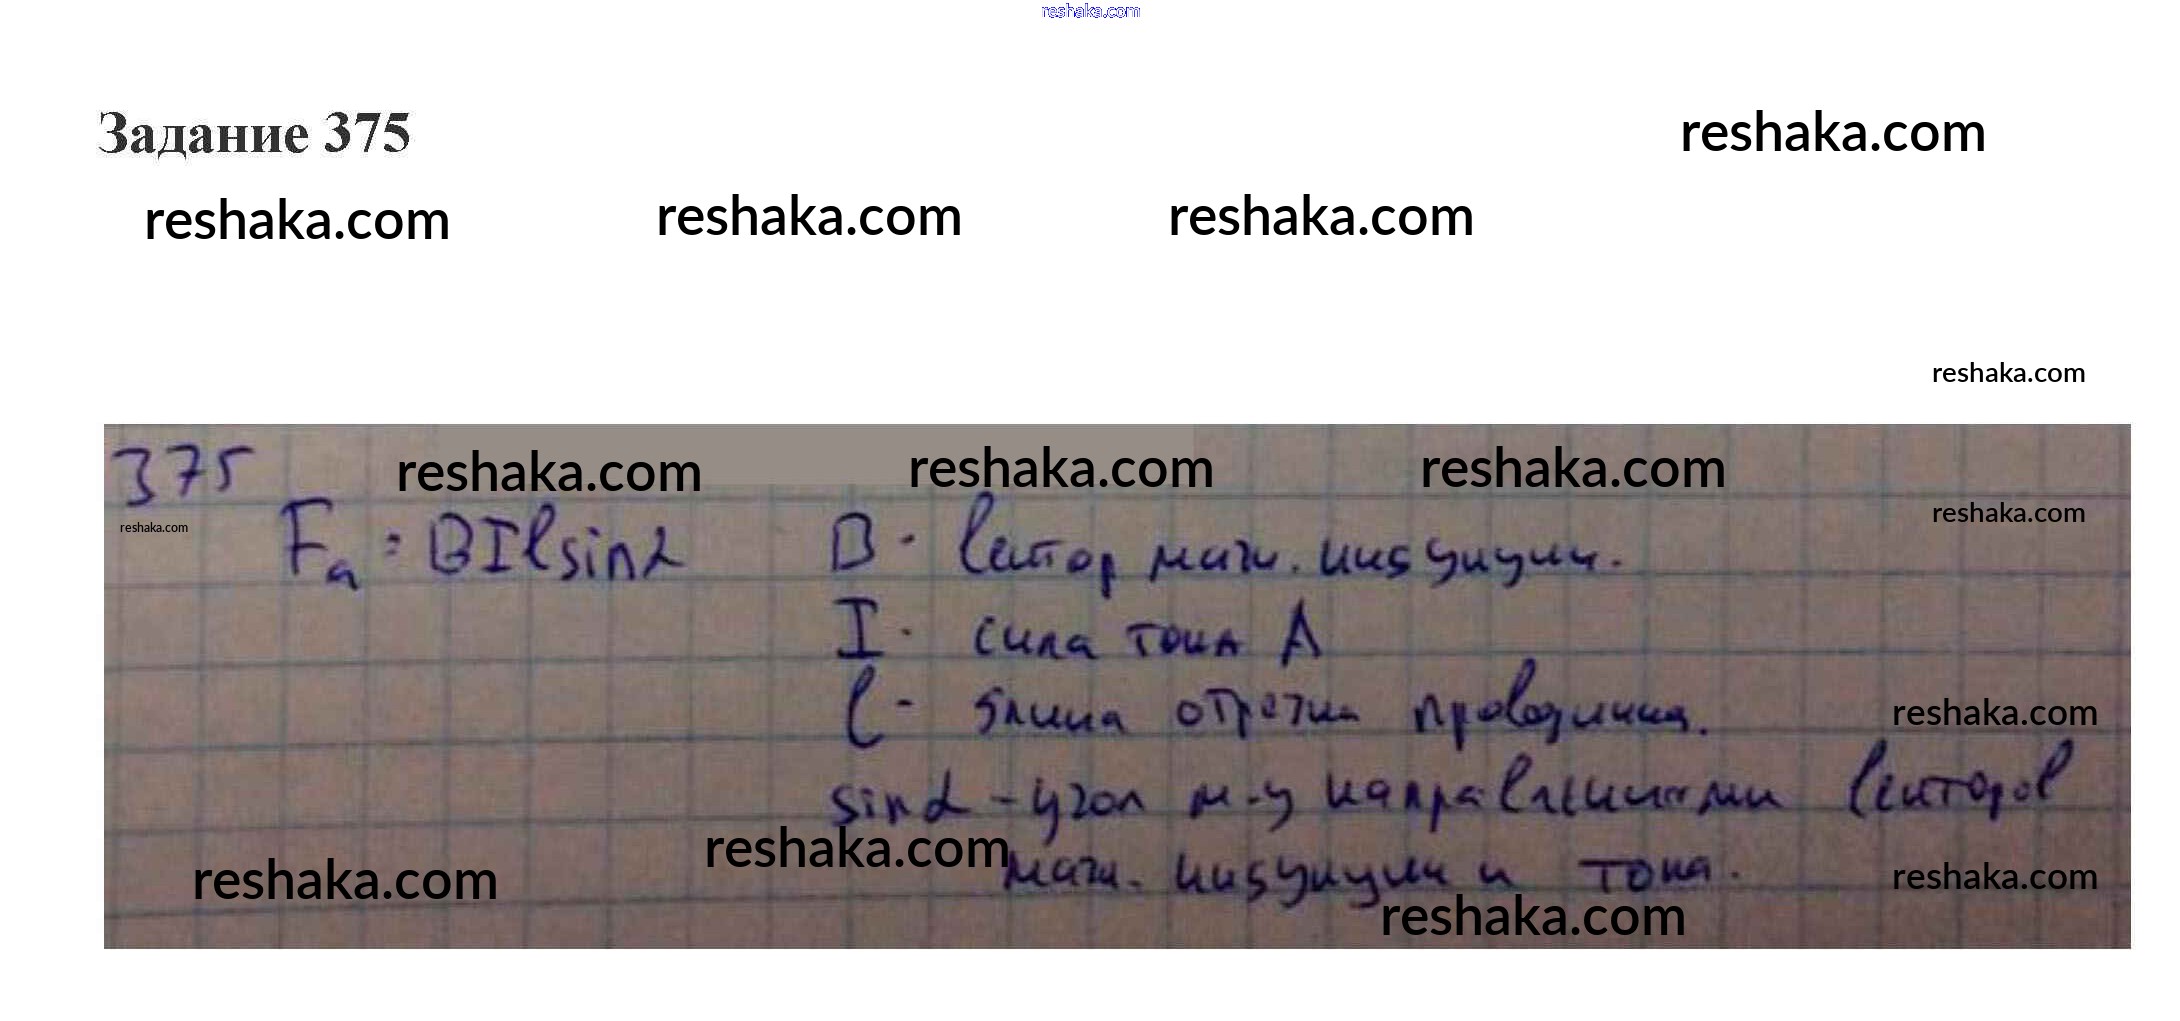 reshaka.com
Задание 375
reshaka.com
reshaka.com reshaka.com reshaka.com
reshaka.com
375
reshaka.com reshaka.com reshaka.com
reshaka.com
reshaka.com
Fа = BIl sinα B - вектор магн. индукции.
I - сила тока А
l - длина отрезка проводника.
reshaka.com
sinα - угол м-у направлениями векторов
reshaka.com
магн. индукции и тока.
reshaka.com
reshaka.com
reshaka.com